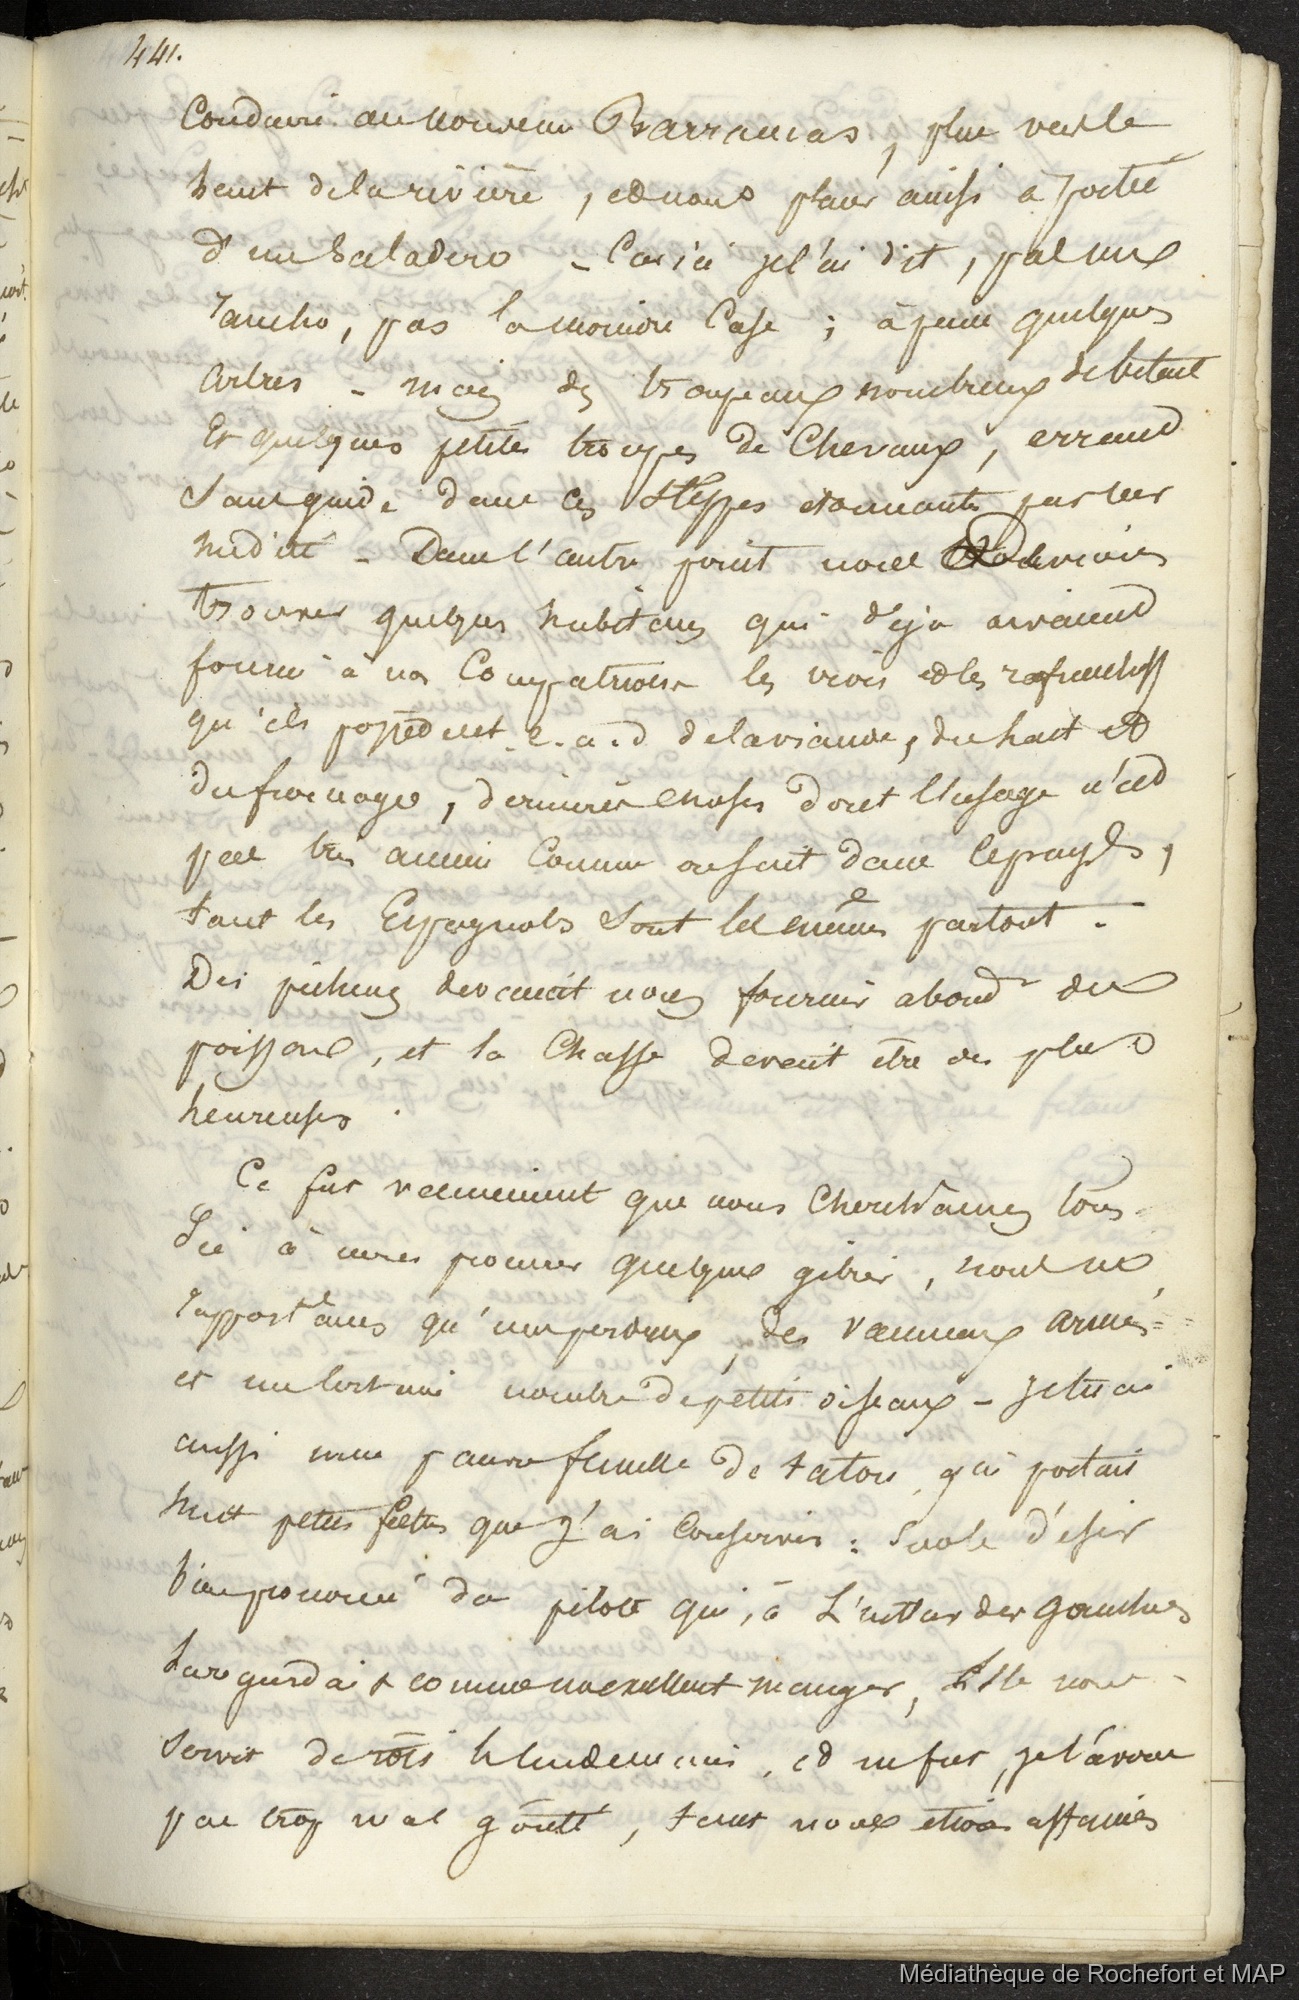 441.
Conduire au nouveau Barrancas, plus vers le
haut de la rivière, et nous placer ainsi à portée
d'un Saladero - Car ici je l'ai dit, pas un
rancho, pas la moindre Case ; à peine quelques
arbres - mais des troupeaux nombreux de bétail
Et quelques petites troupes de Chevaux, errand
Sans guide dans ces Steppes étonnants par leur
nudité - Dans l'autre point nous devions
trouver quelques habitans qui déja avaient
fourni à nos Compatriotes les vivres et les rafraichiss
qu'ils possedent c.a.d de la viande, du lait et
du fromage, dernières choses dont l'usage n'est
pas très ancien Comme on sait dans le pays,
tant les Espagnols Sont les mêmes partout.
Des pécheurs devaient nous fournir abondt du
poisson, et la Chasse devait être des plus
heureuses.
Ce fut vainement que nous Cherchâmes tous
Ici à nous procurer quelque gibier, nous ne
rapportâmes qu'une perdrix, des Vanneaux armés
et un Certain nombre de petits oiseaux - Je tuai
aussi une pauvre femelle de tatou qui portait
huit petits foetus que j'ai Conservés : Sur le désir
bien prononcé du pilote qui, à L'instar des gauchos
la regardait comme un excellent manger, Elle nous
Servit de rôti le lendemain, et ne fut, je l'avoue
pas trop mal goûté, tant nous étions affamés
Médiathèque de Rochefort et MAP